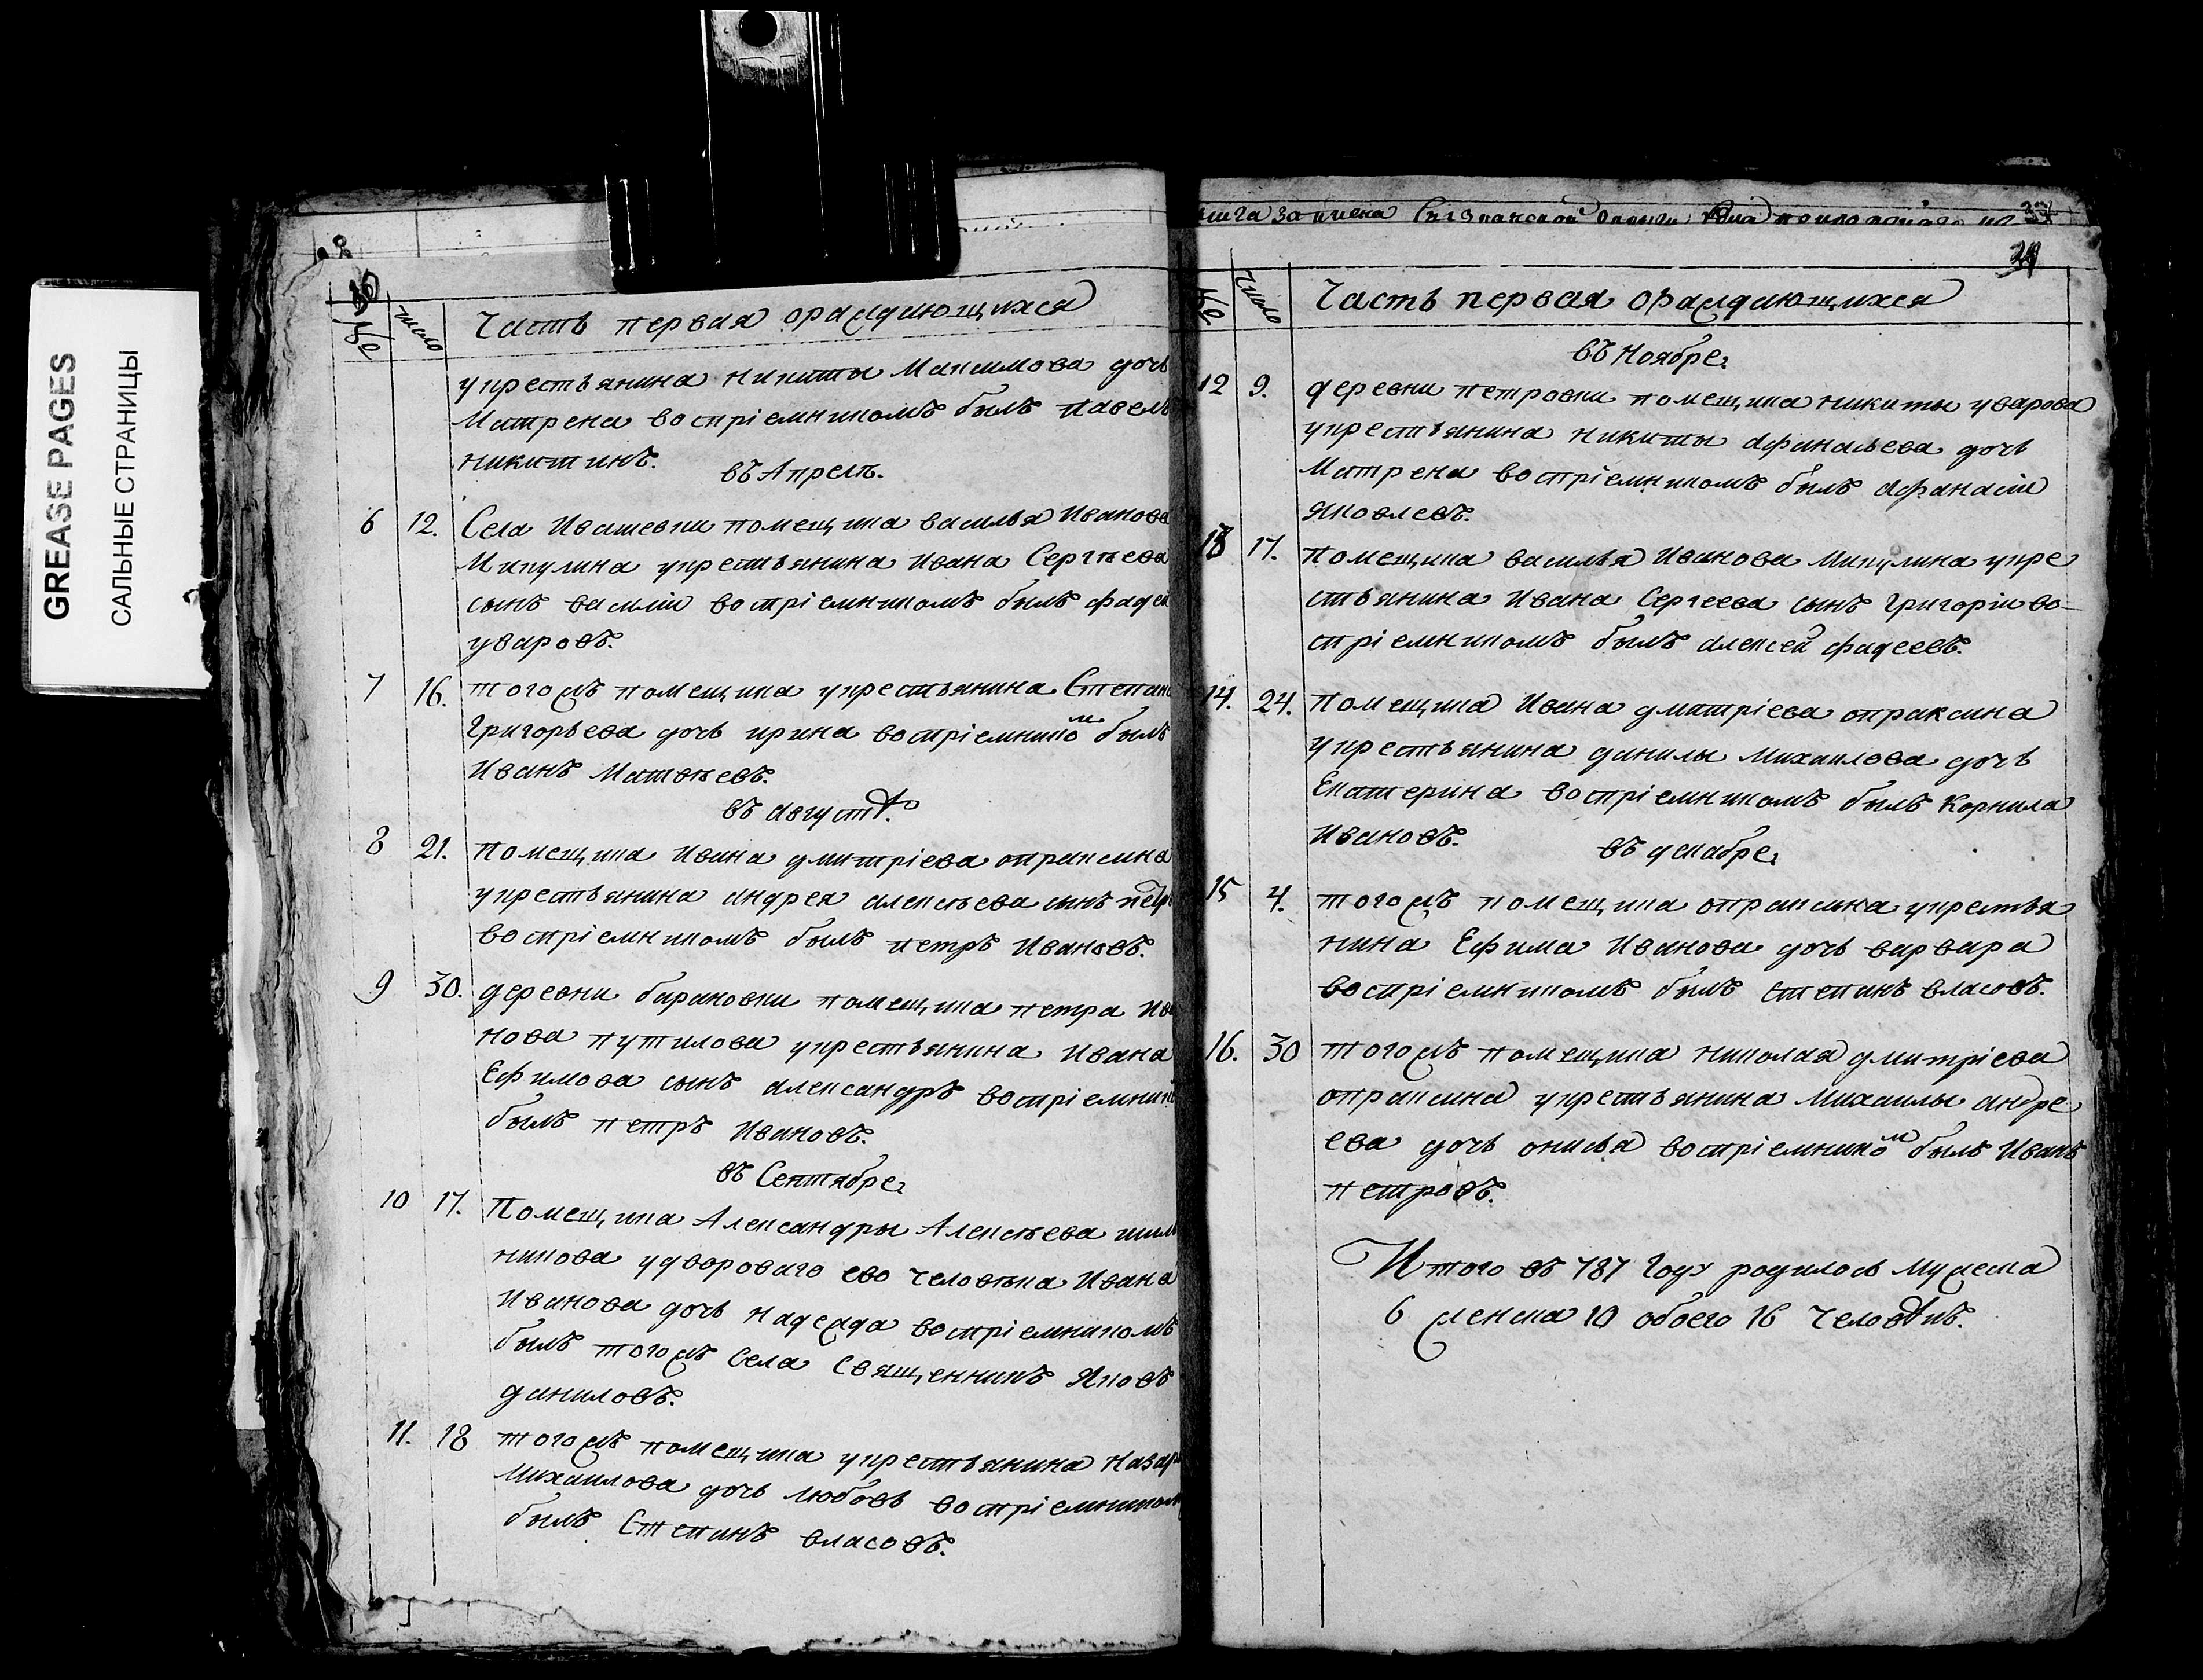 GREASE PAGES
САЛЬНЫЕ СТРАНИЦЫ
№ число Часть первая ораждающихся
укрестьянина никиты Максимова дочь
Матрена воспріемникомъ былъ павелъ
никитинъ.
въ Апреле.
6 12. Села Ивашевки помещика василья Иванова
Микулина укрестьянина Ивана Сергѣева
сынъ василии воспріемникомъ былъ фадей
уваровъ.
7 16. тогожъ помещика укрестьянина Степана
Григорьева дочь ирина воспріемником былъ
Иванъ Матвѣевъ.
въ августѣ.
8 21. помещика Ивана дмитріева опраксина
укрестьянина андрея алексѣева сынъ петръ
воспріемникомъ былъ петръ Ивановъ.
9 30. деревни барановки помещика петра Ива
нова путилова укрестьянина Ивана
Ефимова сынъ александръ воспріемник
былъ петръ Ивановъ.
въ Сентябре
10 17. Помещика Александры Алексѣева
никова удвороваго ево человѣка Ивана
Иванова дочь надежда воспріемникомъ
былъ тогожъ Села Священникъ Яковъ
даниловъ.
11. 18 тогожъ помещика укрестьянина назара
Михаилова дочь любовь воспріемникомъ
былъ Степанъ власовъ.
34
№ Число Часть первая ораждающихся
въ Ноябре
12 9. деревни петровки помещика никиты уварова
укрестьянина никиты афанасьева дочь
Матрена воспріемникомъ былъ афанасии
яковлевъ.
13 17. помещика василья Иванова Микулина укре
стьянина Ивана Сергеева сынъ григории во-
спріемникомъ былъ алексей фадеевъ.
14. 24. помещика Ивана дмитріева опраксина
укрестьянина данилы Михаилова дочь
Екатерина воспріемникомъ былъ корнила
Ивановъ.
въ декабре
15 4. тогожъ помещика опраксина укрестья
нина Ефима Иванова дочь варвара
воспріемникомъ былъ степанъ власовъ.
16. 30 тогожъ помещика николая дмитріева
опраксина укрестьянина Михаилы андре
ева дочь онисья воспріемником былъ Иванъ
петровъ.
Итого въ 787 Году родилось мужеска
6 женска 10 обоего 16 человѣкъ.